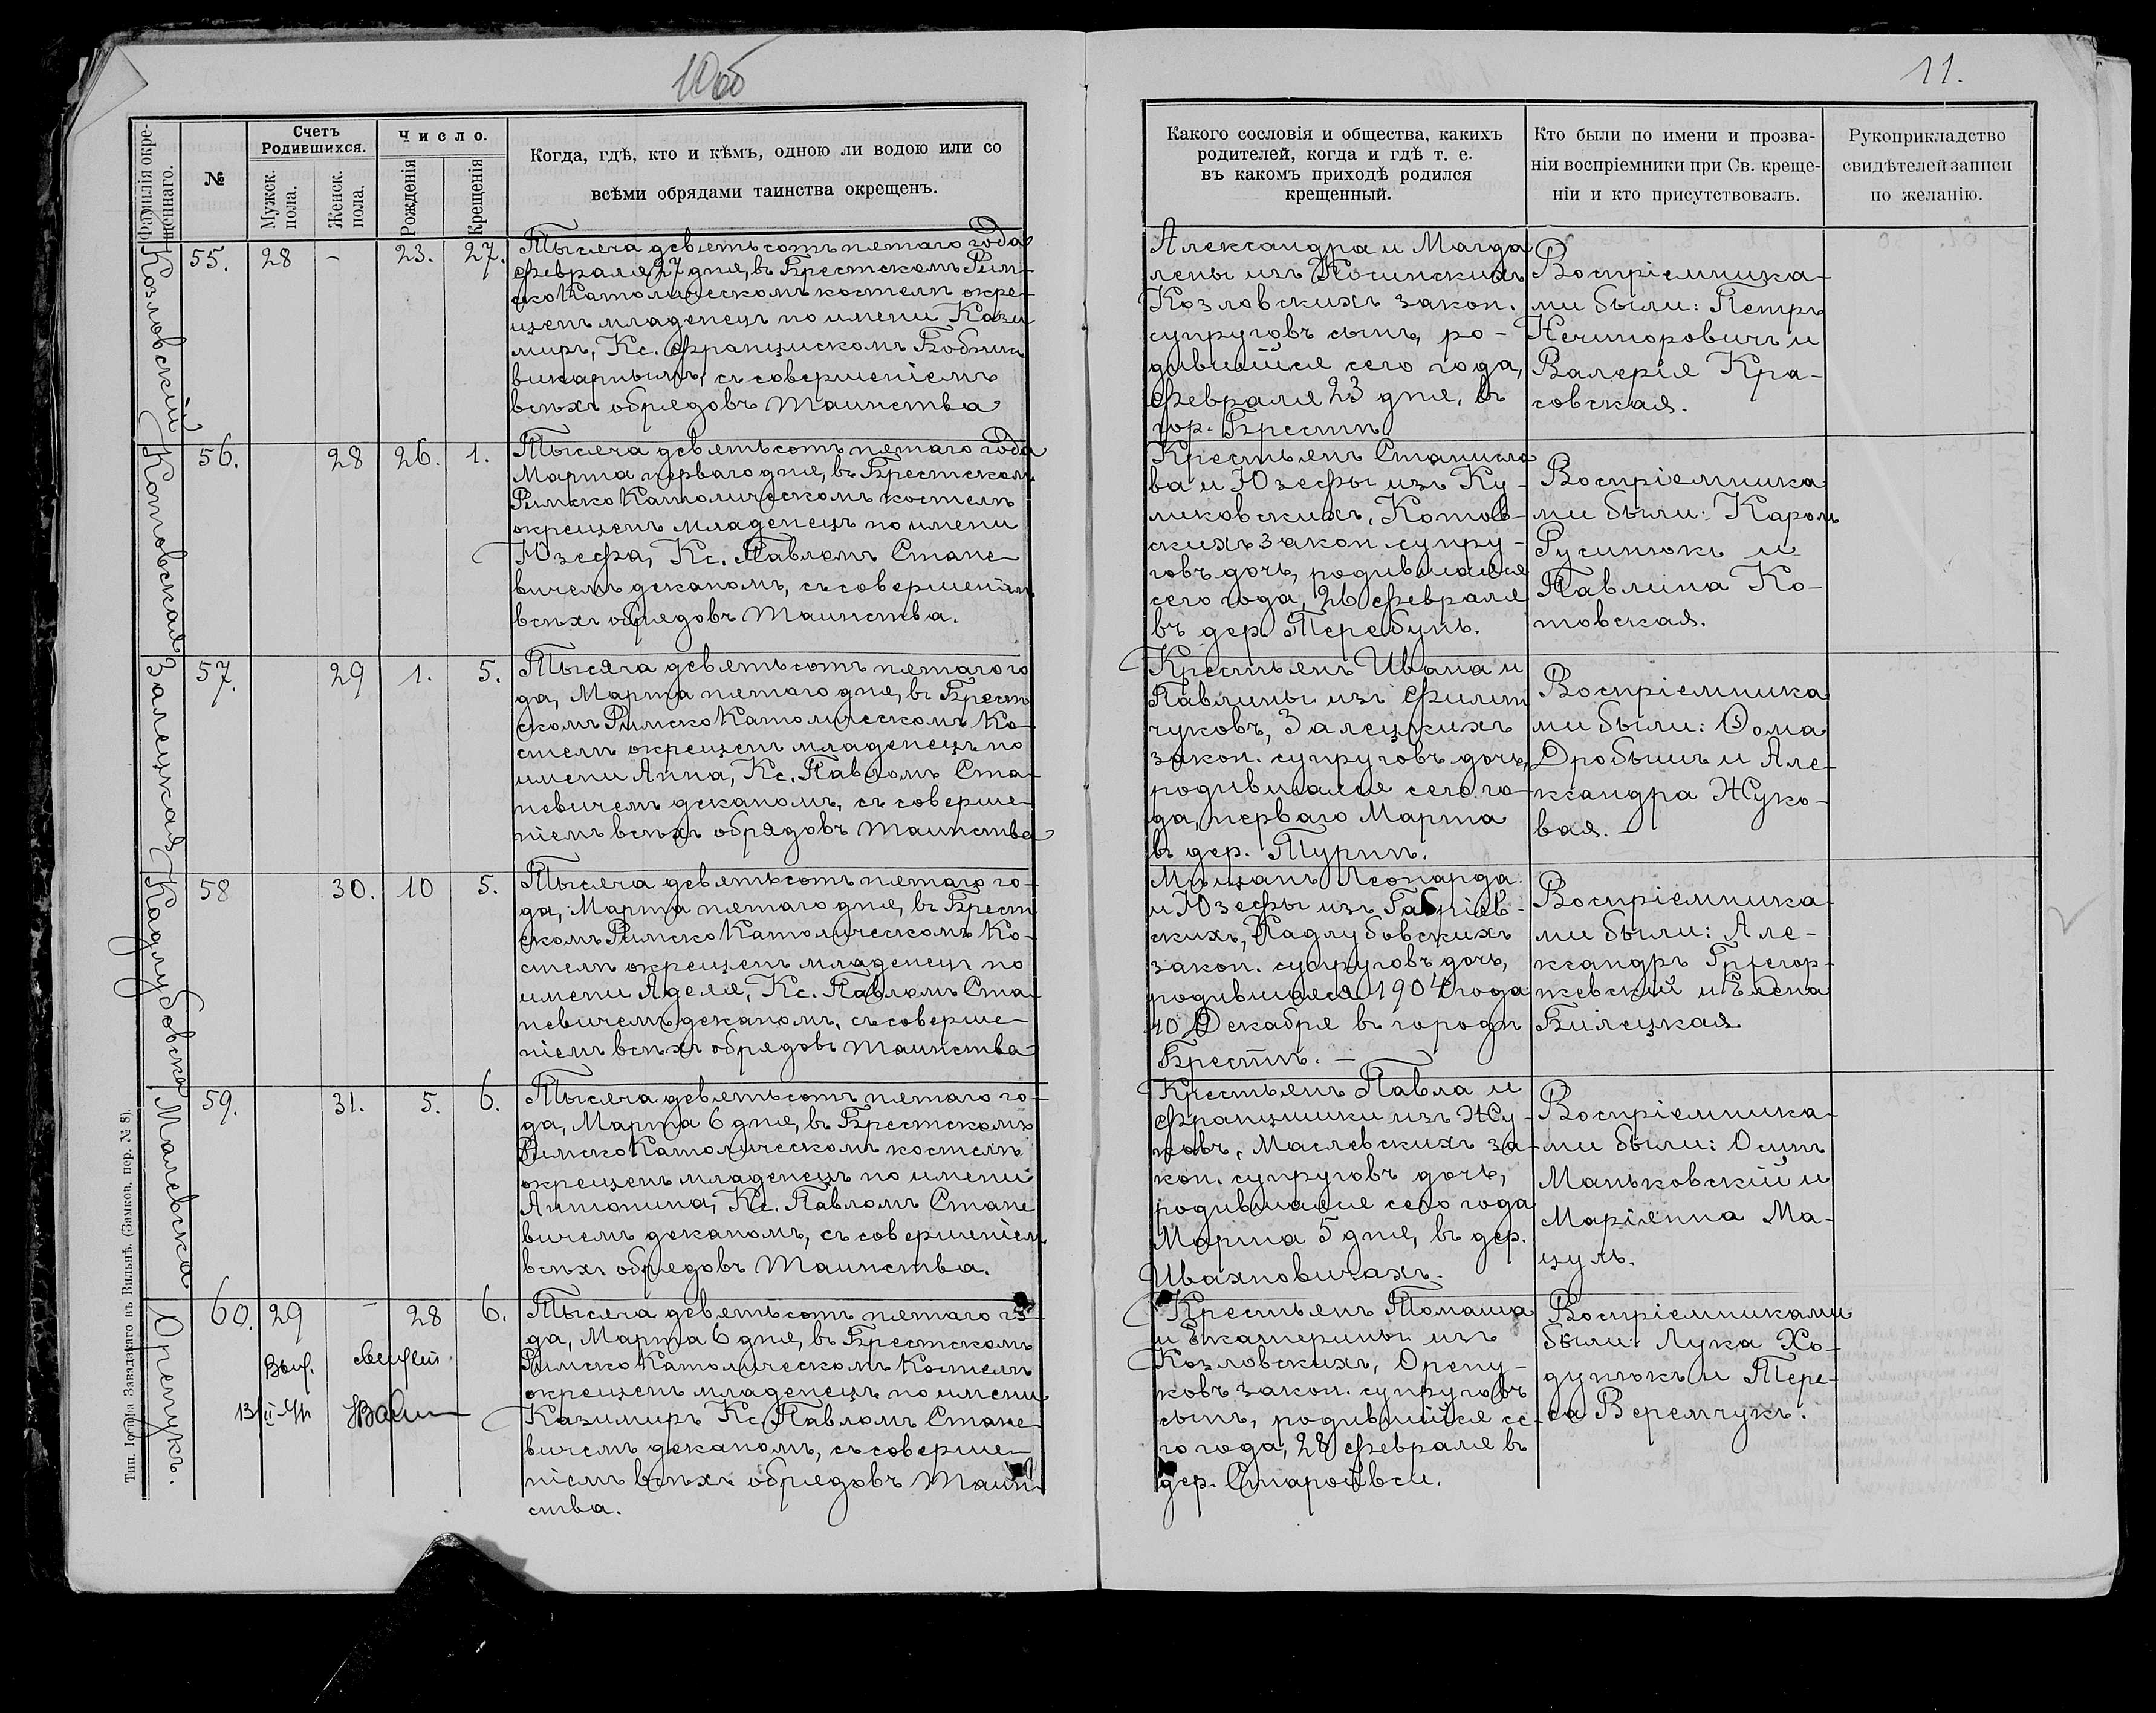 10об
11.
Фамилія окре-
щеннаго.
№
Счетъ
Родившихся.
Мужск.
пола.
Женск.
пола.
Число.
Рожденія
Крещенія
Когда, гдѣ, кто и кѣмъ, одною ли водою или со
всѣми обрядами таинства окрещенъ.
Какого сословія и общества, какихъ
родителей, когда и гдѣ т. е.
въ какомъ приходѣ родился
крещенный.
Кто были по имени и прозва-
ніи воспріемники при Св. креще-
ніи и кто присутствовалъ.
Рукоприкладство
свидѣтелей записи
по желанію.
Козловскій
55. 28 - 23. 27.
Тысяча девятьсотъ пятаго года
Февраля 27 дня, въ Брестскомъ Рим-
ско Католическомъ костелѣ окре-
щенъ младенецъ по имени Кази
миръ, Кс. Францискомъ Бобник
викарнымъ, съ совершеніемъ
всѣхъ обрядовъ Таинства
Александра и Магда
лены изъ Косинскихъ
Козловскихъ закон.
супруговъ сынъ, ро-
дившійся сего года,
Февраля 23 дня, въ
гор. Брестѣ.
Воспріемника-
ми были: Петръ
Нечипоровичъ и
Валерія Кра-
совская.
Котовская
56. 28 26. 1.
Тысяча девятьсотъ пятаго года
Марта перваго дня, въ Брестском
Римско Католическомъ костелѣ
окрещенъ младенецъ по имени
Юзефа, Кс. Павломъ Стане-
вичемъ деканомъ, съ совершеніем
всѣхъ обрядовъ Таинства.
Крестьянъ Станисла
ва и Юзефы изъ Ку-
ликовскихъ, Котов-
скихъ закон. супру-
говъ дочь, родившаяся
сего года, 26 Февраля
въ дер. Теребунь.
Воспріемника
ми были: Кароль
Русинюкъ и
Павлина Ко-
товская.
Залецкая
57. 29 1. 5.
Тысяча девятьсотъ пятаго го
да, Марта пятаго дня, въ Брест
скомъ Римско Католическомъ Ко-
стелѣ окрещенъ младенецъ по
имени Анна, Кс. Павломъ Ста-
невичемъ деканомъ, съ соверше-
ніемъ всѣхъ обрядовъ Таинства
Крестьянъ Ивана и
Павлины изъ Филип
чуковъ, Залецкихъ
закон. супруговъ дочь,
родившаяся сего го-
да, перваго Марта
въ дер. Туринъ.
Воспріемника
ми были: Фома
Дробышъ и Але-
ксандра Жуко-
вая. -
Кадлубовска
58 30. 10 5.
Тысяча девятьсотъ пятаго го-
да, Марта пятаго дня, въ Брест
скомъ Римско Католическомъ Ко-
стелѣ окрещенъ младенецъ по
имени Аделя, Кс. Павломъ Ста-
невичемъ деканомъ, съ соверше-
ніемъ всѣхъ обрядовъ Таинства
Мѣщанъ Леонарда
и Юзефы изъ Габріев-
скихъ, Кадлубовскихъ
закон. супруговъ дочь,
родившаяся 1904 года
10 Декабря въ городѣ
Брестѣ. -
Воспріемника-
ми были: Але-
ксандръ Грегор-
жевскій и Елена
Билецкая
Малевска
59. 31. 5. 6.
Тысяча девятьсотъ пятаго го-
да, Марта 6 дня, въ Брестскомъ
Римско Католическомъ костелѣ
окрещенъ младенецъ по имени
Антонина, Кс. Павломъ Стане
вичемъ деканомъ, съ совершеніем
всѣхъ обрядовъ Таинства.
Крестьянъ Павла и
Францишки изъ Жу-
ковъ, Маслевскихъ за-
кон. супруговъ дочь,
родившаяся сего года
Марта 5 дня, въ дер.
Ивахновичахъ.
Воспріемника-
ми были: Осипъ
Маньковскій и
Маріянна Ма-
цуль.
Оренукъ.
60. 29 - 28 6.
Тысяча девятьсотъ пятаго го-
да, Марта 6 дня, въ Брестскомъ
Римско Католическомъ Костелѣ
окрещенъ младенецъ по имени
Казимиръ Кс. Павломъ Стане-
вичемъ деканомъ, съ соверше-
ніемъ всѣхъ обрядовъ Таин-
ства.
Крестьянъ Томаша
и Екатерины изъ
Козловскихъ, Орену-
ковъ закон. супруговъ
сынъ, родившійся се-
го года, 28 Февраля въ
дер. Старойвси.
Воспріемниками
были: Лука Хо-
дунюкъ и Тере-
са Веремчукъ.
Тип. Іосифа Завадзкаго въ Вильнѣ. (Замков. пер. № 8).